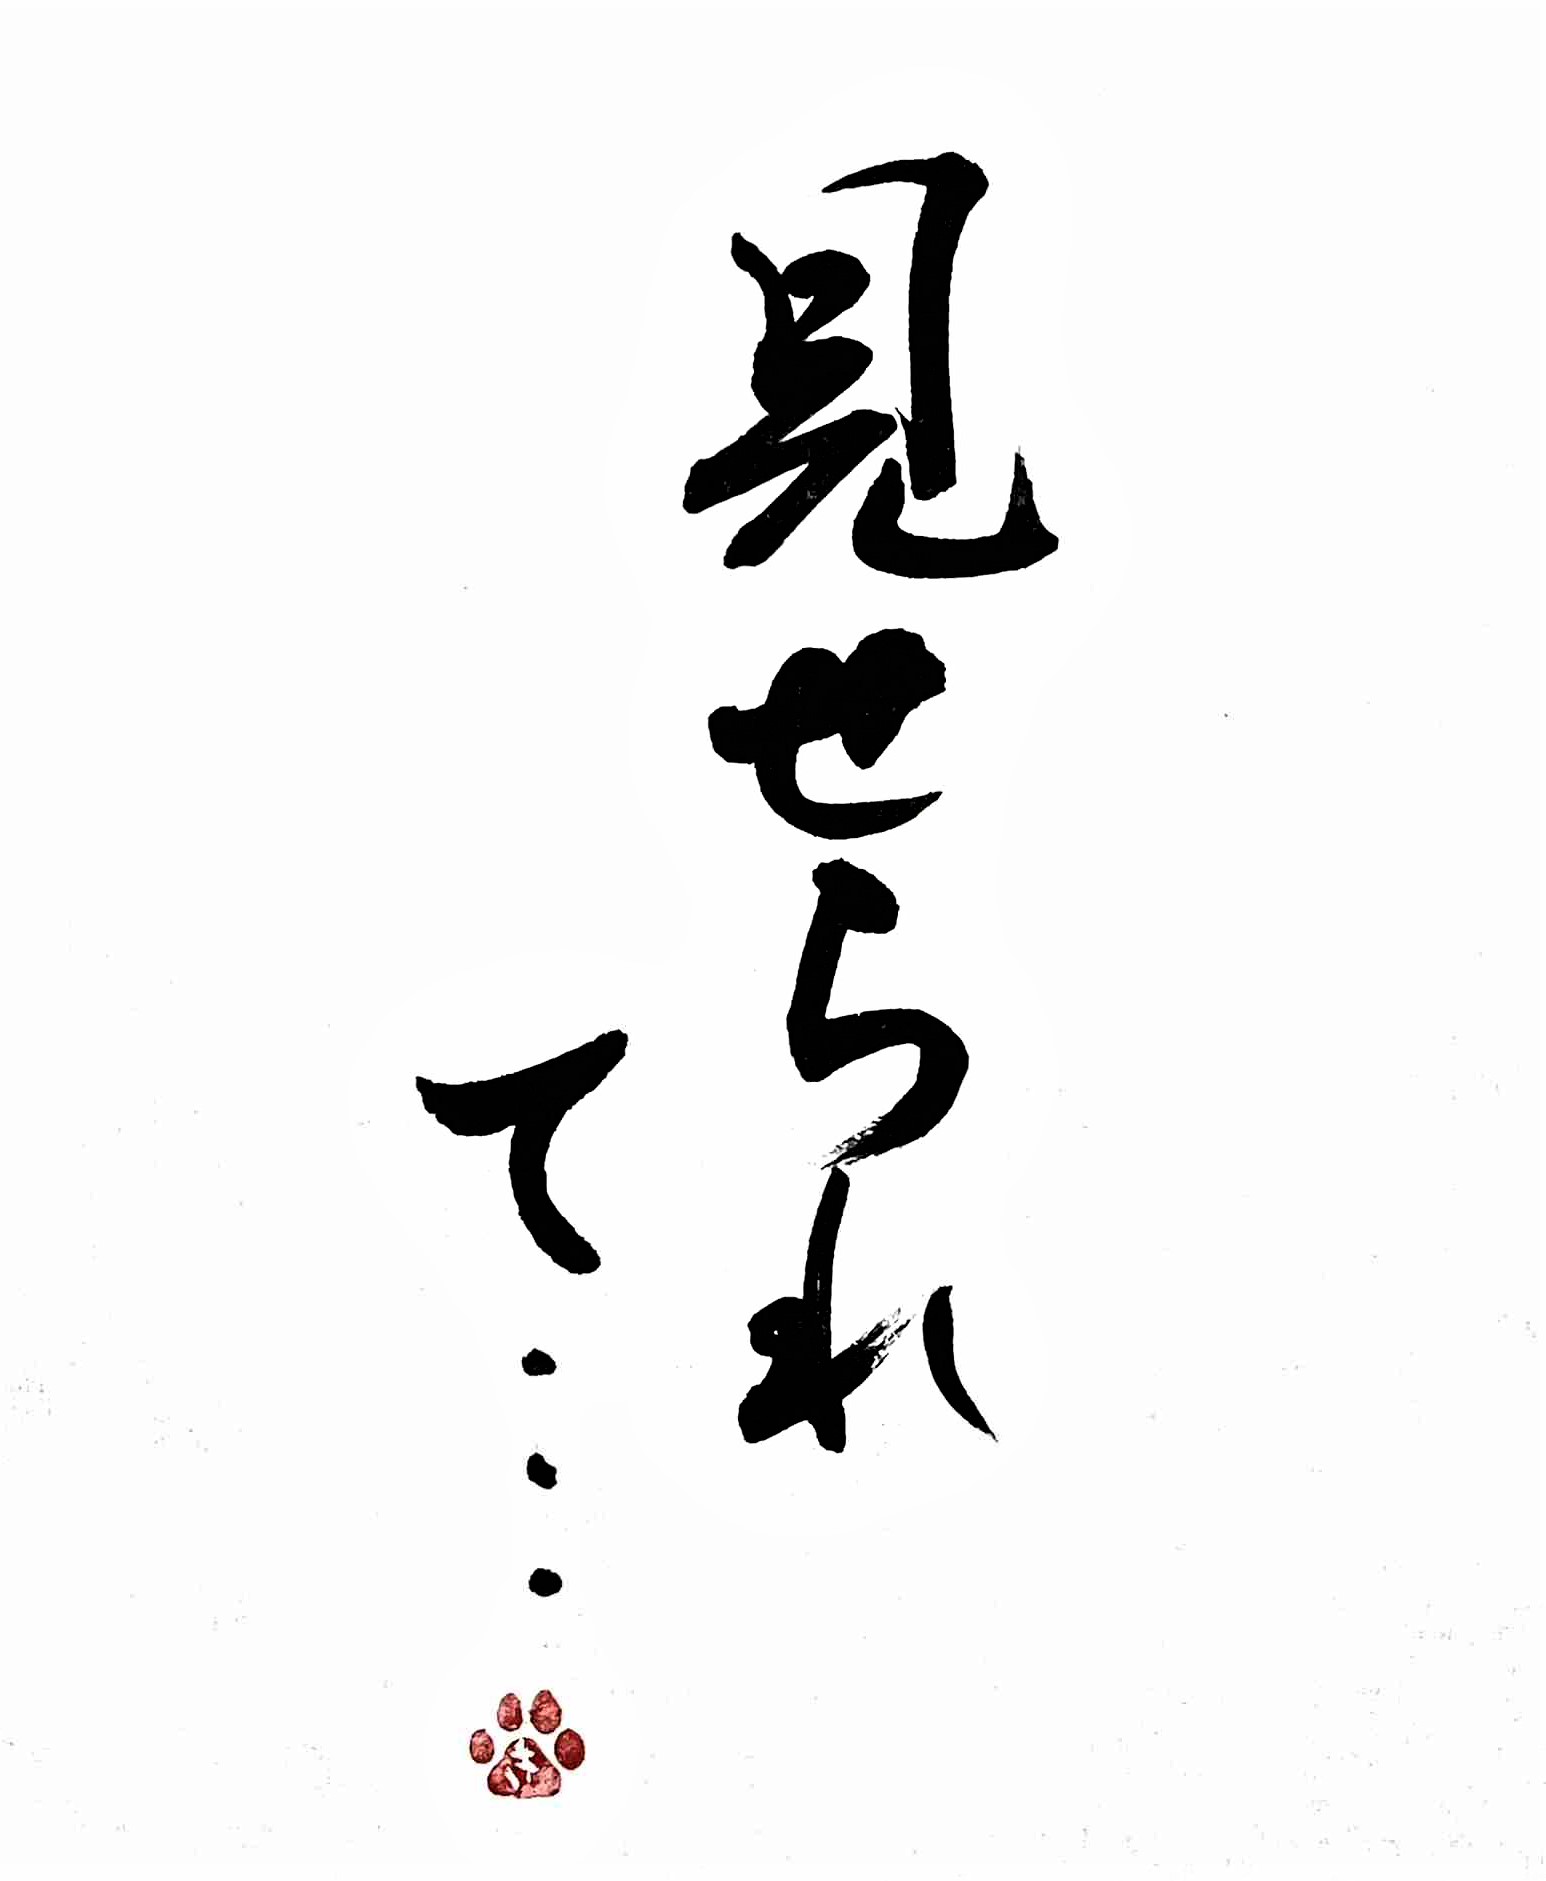 見せられ
て・・・